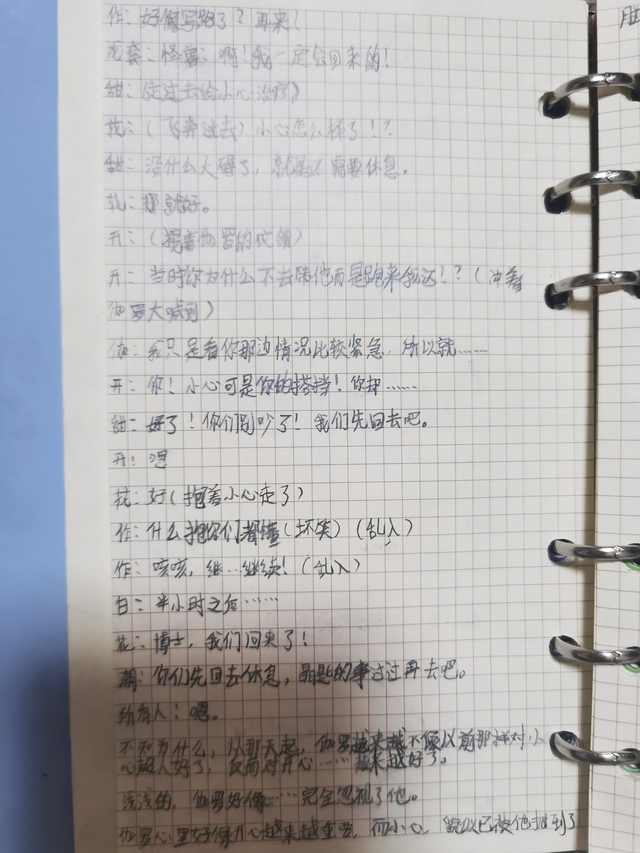 作：好像写跑了？再来！
龙套：怪兽：啊！我一定会回来的！
甜：(走过去给小心治疗)
花：(飞奔过去)小心怎么样了！？
甜：没什么大碍了，就是还需要休息。
花：那就好。
开：(揪着伽罗的衣领)
开：当时你为什么不去陪他而是跑来我这！？(冲着
伽罗大喊到)
伽：我只是看你那边情况比较紧急，所以就……
开：你！小心可是你的搭挡！你却……
甜：好了！你们别吵了！我们先回去吧。
开：嗯
花：好(抱着小心走了)
作：什么抱你们都懂(坏笑)(乱入)
作：咳咳，继…继续！(乱入)
白：半小时之后……
花：博士，我们回来了！
萌：你们先回去休息，晶匙的事过过再去吧。
所有人：嗯。
不知为什么，从那天起，伽罗越来越不像以前那样对小
心超人好了，反而对开心……越来越好了。
渐渐的，伽罗好像……完全忽视了他。
伽罗心里好像开心越来越重要，而小心，貌似已被他